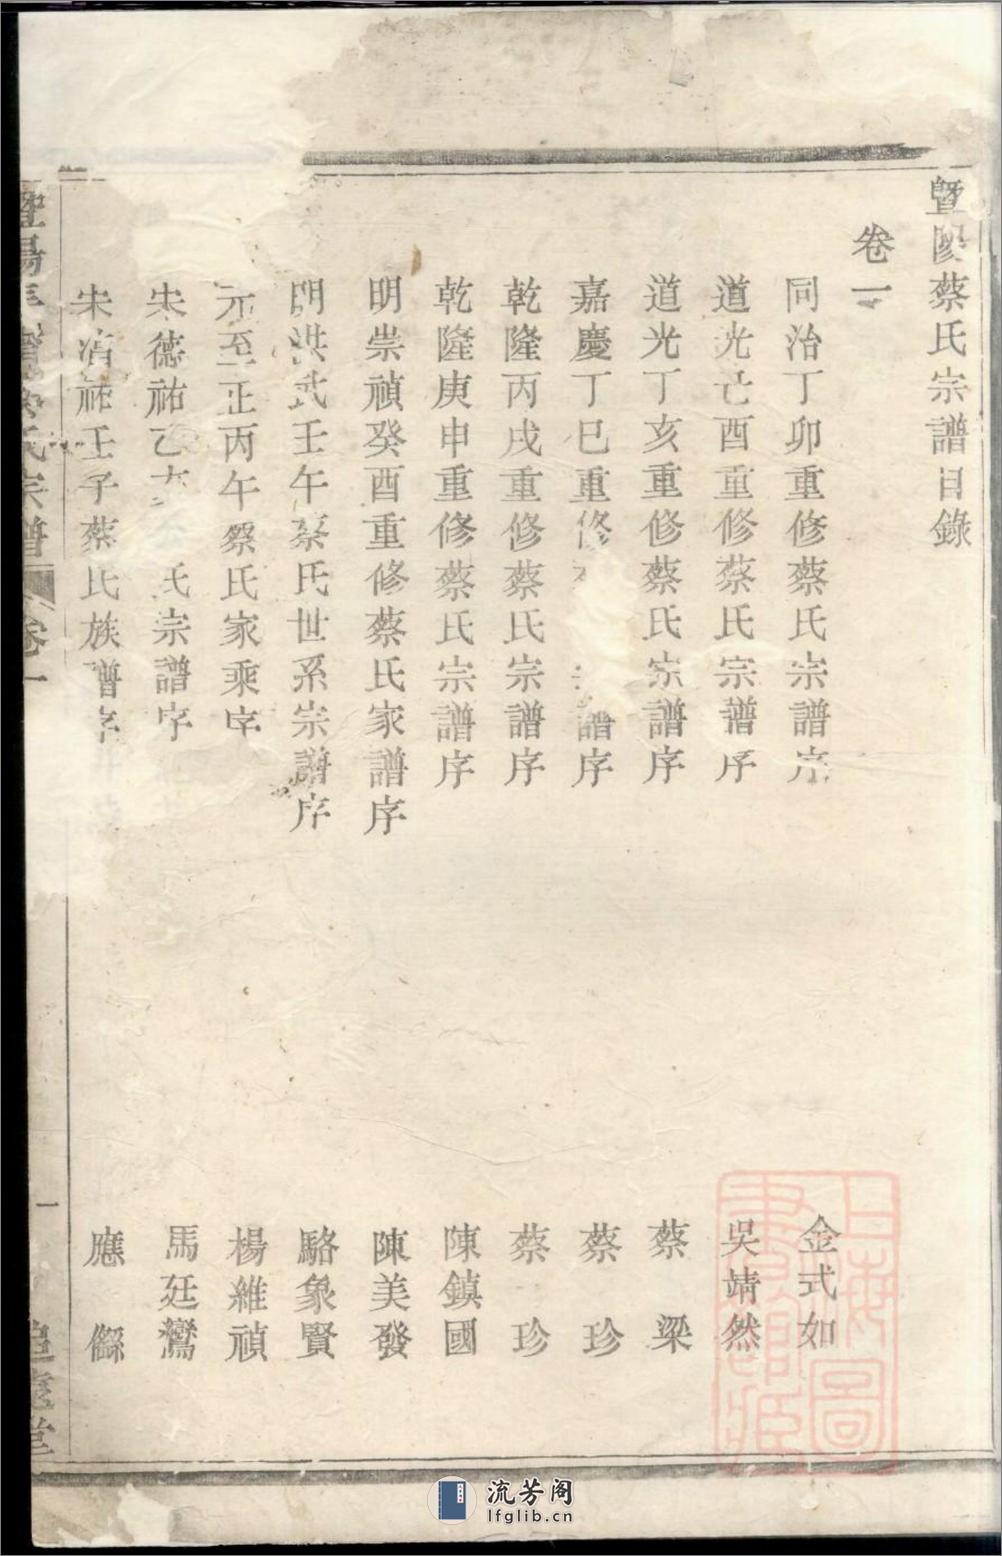 暨陽蔡氏宗譜目錄
卷一
同治丁卯重修蔡氏宗譜序 金式如
道光己酉重修蔡氏宗譜序 吳靖然
道光丁亥重修蔡氏宗譜序 蔡梁
嘉慶丁巳重修 譜序 蔡珍
乾隆丙戌重修蔡氏宗譜序 蔡珍
乾隆庚申重修蔡氏宗譜序 陳鎮國
明崇禎癸酉重修蔡氏家譜序 陳美發
明洪武壬午蔡氏世系宗譜序 駱象賢
元至正丙午蔡氏家乘序 楊維禎
宋德祐乙 氏宗譜序 馬廷鸞
宋淳祐壬子蔡氏族譜序 應㒡
暨陽 蔡氏宗譜 卷一 一 堂
上海圖書館藏
流芳阁
lfglib.cn